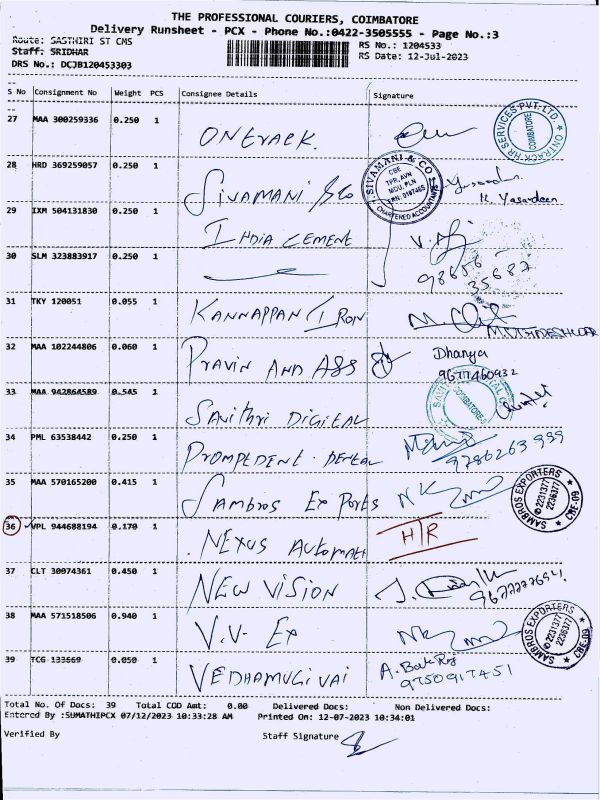 THE PROFESSIONAL COURIERS, COIMBATORE
Delivery Runsheet - PCX - Phone No.:0422-3505555 - Page No.:3
Route: SASTHIRI ST CMS
RS No.: 1204533
Staff: SRIDHAR
RS Date: 12-Jul-2023
DRS No.: DCJB120453303
S No Consignment No Weight PCS Consignee Details Signature
27 MAA 300259336 0.250 1 ONTRACK
ONTRACK HR SERVICES PVT. LTD. COIMBATORE
28 HRD 369259057 0.250 1 SIVAMANI & Co
SIVAMANI & CO. CBE TPR, AVN MDU, PLN CHARTERED ACCOUNTANTS
K. Yasardeen
29 IXM 504131830 0.250 1 INDIA CEMENT
30 SLM 323883917 0.250 1
98656
35687
31 TKY 120051 0.055 1 KANNAPPAN IRON
32 MAA 102244806 0.060 1 PRAVIN AND ASS
Dhanya
9677460932
33 MAA 942864589 0.545 1 SAVITHRI DIGITAL
COIMBATORE
34 PML 63538442 0.250 1 PROMPTDENT. DENTAL
9786263939
35 MAA 570165200 0.415 1 SAMBROS EXPORTS
SAMBROS EXPORTERS 2231377 2236377 CBE-09
36 VPL 944688194 0.170 1 NEXUS AUTOMATI
HTR
37 CLT 30074361 0.450 1 NEW VISION
38 MAA 571518506 0.940 1 V.V. EX
SAMBROS EXPORTERS 2231377 2236377 CBE-09
39 TCG 133669 0.050 1 VEDHAMUGIVAI
A. Bala Raj
9750917451
Total No. Of Docs: 39 Total COD Amt: 0.00 Delivered Docs: Non Delivered Docs:
Entered By :SUMATHIPCX 07/12/2023 10:33:28 AM Printed On: 12-07-2023 10:34:01
Verified By Staff Signature